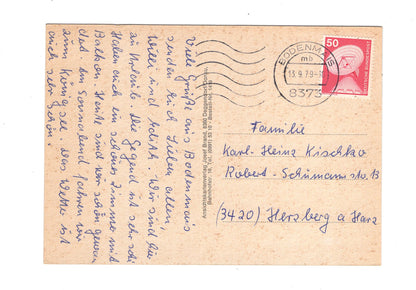 Viele Grüße aus Bodenmais
senden Euch Lieben allen,
Willi und Edith. Wir sind hier
zu Urlaub. Die Gegend ist sehr schön
Haben auch ein schönes Zimmer mit
Balkon. Heute sind wir schön gewan
dert. Am Sonnabend fahren wir
zum Königsee. Das Wetter ist
auch sehr schön.
Ansichtskartenverlag Josef Brandl, 8360 Deggendorf
BODENMAIS
mb
13.9.79
8373
50
DEUTSCHE BUNDESPOST
Familie
Karl-Heinz Kischko
Robert-Schumann str. 13
(3420) Herzberg a Harz